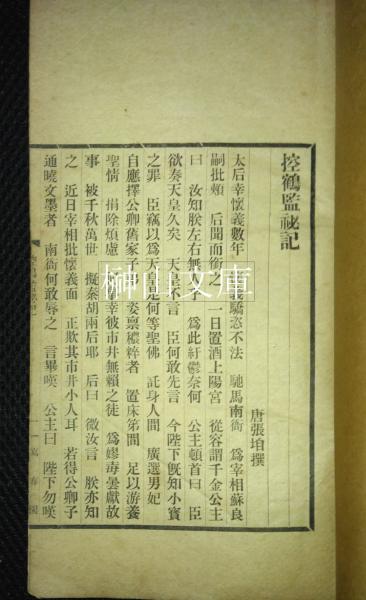 控鶴監祕記
唐張垍撰
太后幸懷義數年 義驕恣不法 馳馬南衙 爲宰相蘇良
嗣批頰 后聞而銜之 一日置酒上陽宮 從容謂千金公主
曰 汝知朕左右無人乎 爲此紆鬱奈何 公主頓首曰 臣
欲奏天皇久矣 天皇不言 臣何敢先言 今陛下旣知小寶
之罪 臣竊以爲天皇是何等聖佛 託身人間 廣選男妃
自應擇公卿舊家子 姿禀穠粹者 置床笫間 足以游養
聖情 捐除煩慮 幸彼市井無賴之徒 爲嫪毐曇獻故
事 被千秋萬世 擬秦胡兩后耶 后曰 微汝言 朕亦知
之 近日宰相批懷義面 正欺其市井小人耳 若得公卿子
通曉文墨者 南衙何敢辱之 言畢嘆 公主曰 陛下勿嘆
榊山文庫